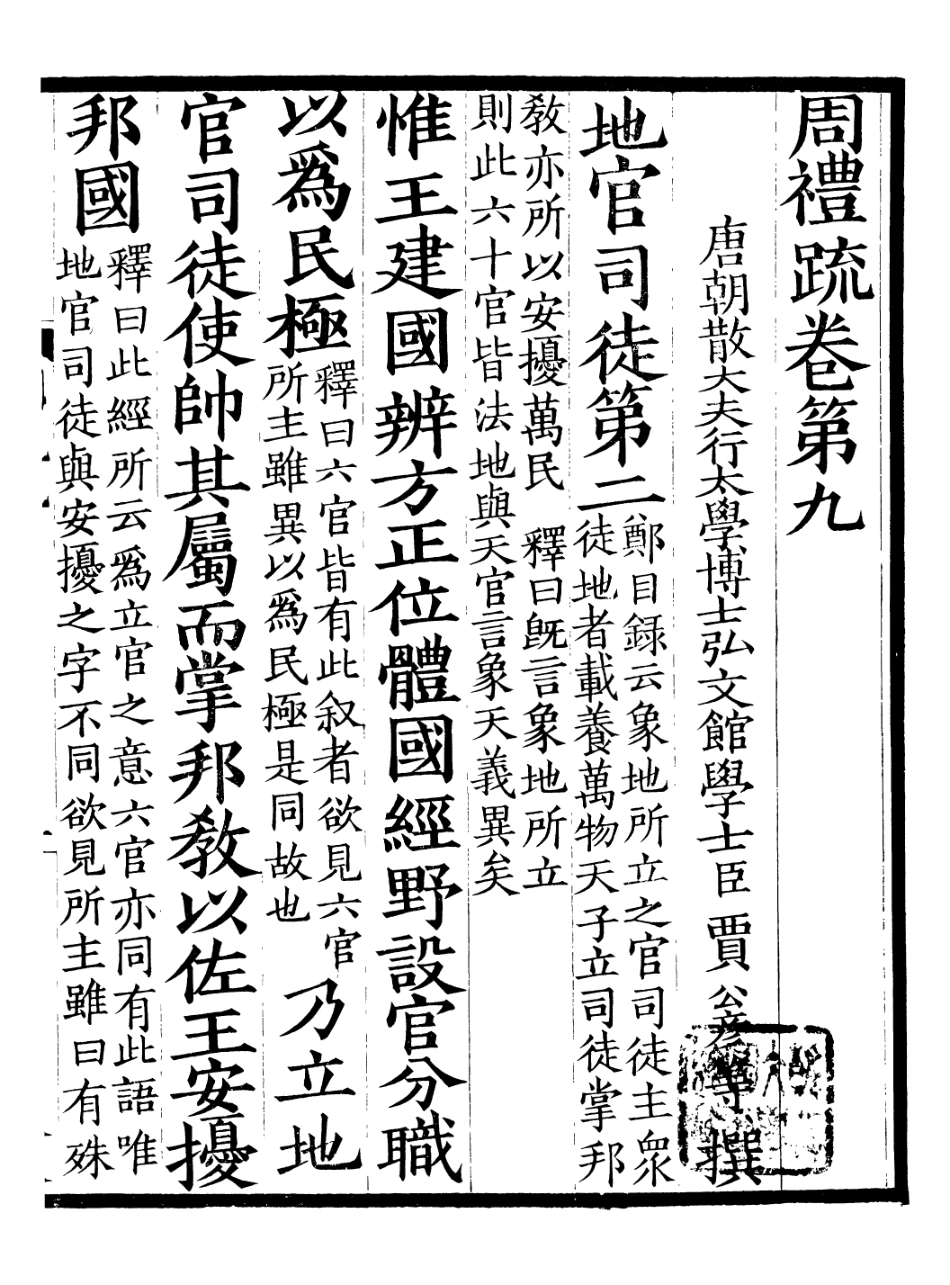 周禮䟽卷第九
唐朝散大夫行太學博士弘文館學士臣賈公彥等撰
地官司徒第二
鄭目録云象地所立之官司徒主衆
徒地者載養萬物天子立司徒掌邦
敎亦所以安擾萬民 釋曰旣言象地所立
則此六十官皆法地與天官言象天義異矣
惟王建國辨方正位體國經野設官分職
以爲民極
釋曰六官皆有此叙者欲見六官
所主雖異以爲民極是同故也
乃立地
官司徒使帥其屬而掌邦敎以佐王安擾
邦國
釋曰此經所云爲立官之意六官亦同有此語唯
地官司徒與安擾之字不同欲見所主雖曰有殊